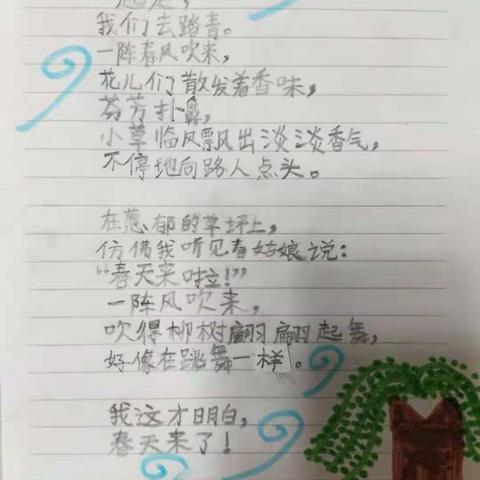 我们去踏青。
一阵春风吹来,
花儿们散发着香味,
芬芳扑鼻,
小草临风飘出淡淡香气,
不停地向路人点头。
在葱郁的草坪上,
仿借我听见春姑娘说:
“春天来啦!”
一阵风吹来,
吹得柳树翩翩起舞,
好像在跳舞一样。
我这才明白,
春天来了!